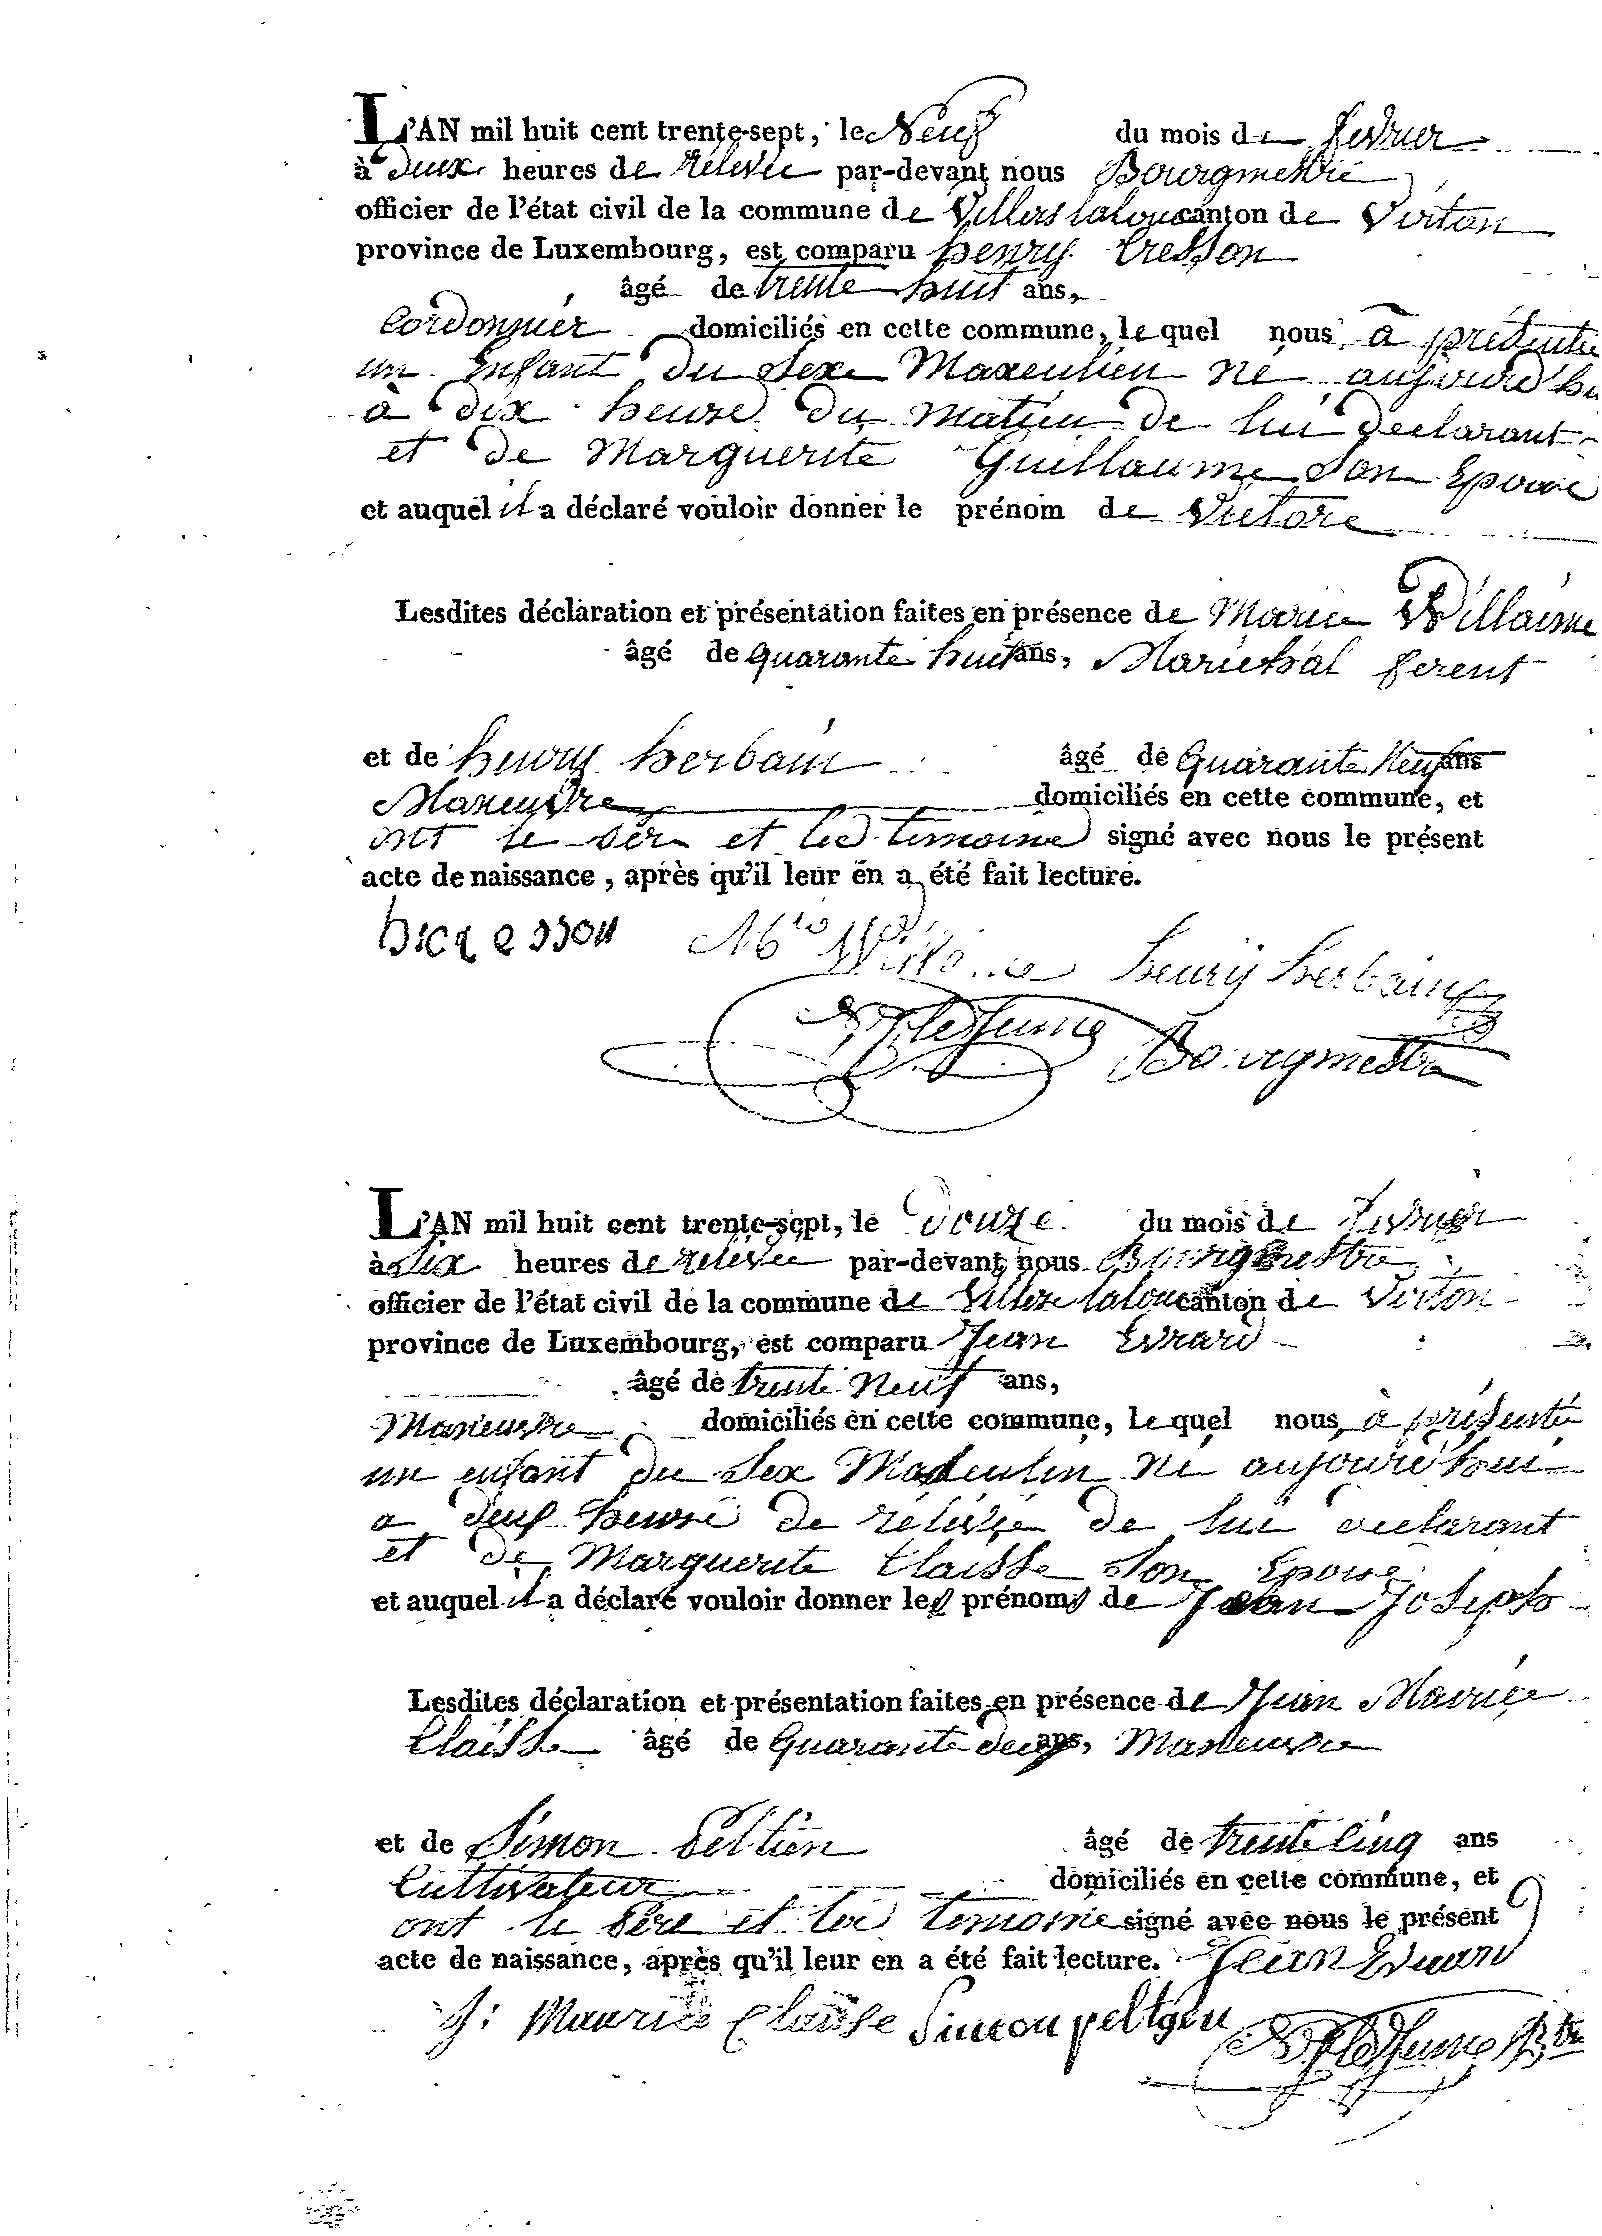 L'AN mil huit cent trente-sept, le Neuf du mois de fevrier
à deux heures de relevée par-devant nous Bourgmestre
officier de l'état civil de la commune de Villers laloue canton de Virton
province de Luxembourg, est comparu henry Cresson
âgé de trente huit ans,
Cordonnier domiciliés en cette commune, le quel nous à présentée
un Enfant du Sexe Maxculien né aujourd'hu
à dix heures du matin de lui declarant
et de Marguerite Guillaume Son Epouse
et auquel il a déclaré vouloir donner le prénom de Victore
Lesdites déclaration et présentation faites en présence de Marie Willaime
âgé de quarante huit ans, Marichal ferent
et de henry herbain âgé de Quarante Neuf ans
Maneuvre domiciliés en cette commune, et
ont le Pér et les temoins signé avec nous le présent
acte de naissance, après qu'il leur en a été fait lecture.
hicresson henry herbain
Bourgmestre
L'AN mil huit cent trente-sept, le douze du mois de fevrier
à Six heures de relevée par-devant nous Bourgmestre
officier de l'état civil de la commune de Villers laloue canton de Virton
province de Luxembourg, est comparu Jean Evrard
âgé de trente Neuf ans,
Maneuvre domiciliés en cette commune, le quel nous à présentée
un enfant du Sex Masculin né aujourd'hui
a deux heures de relevée de lui declarant
et de Marguerite Claisse Son Epouse
et auquel il a déclaré vouloir donner les prénoms de Jean Joseph
Lesdites déclaration et présentation faites en présence de Jean Maurice
Claisse âgé de Quarante deux ans, Maneuvre
et de Simon Peltien âgé de trente Cinq ans
Cultivateur domiciliés en cette commune, et
ont le Pére et les temoins signé avec nous le présent
acte de naissance, après qu'il leur en a été fait lecture. Jean Evrard
J: Maurice Claisse Simon peltgen